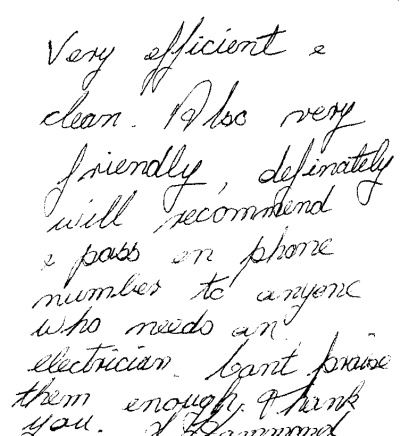 Very efficient &
clean. Also very
friendly, definately
will recommend
& pass on phone
number to anyone
who needs an
electrician. Cant praise
them enough. Thank
you.